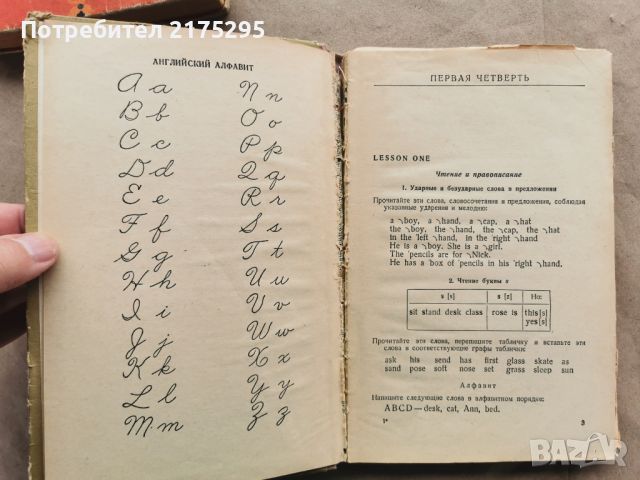 Потребител 2175295
АНГЛИЙСКИЙ АЛФАВИТ
A a N n
B b O o
C c P p
D d Q q
E e R r
F f S s
G g T t
H h U u
I i V v
J j W w
K k X x
L l Y y
M m Z z
ПЕРВАЯ ЧЕТВЕРТЬ
LESSON ONE
Чтение и правописание
1. Ударные и безударные слова в предложении
Прочитайте эти слова, словосочетания и предложения, соблюдая
указанные ударения и мелодию:
a ↘boy, a ↘hand, a ↘cap, a ↘hat
the ↘boy, the ↘hand, the ↘cap, the ↘hat
in the ˈleft ↘hand, in the ˈright ↘hand
He is a ↘boy. She is a ↘girl.
The ˈpencils are for ↘Nick.
He has a ˈbox of ˈpencils in his ˈright ↘hand.
2. Чтение буквы s
s [s] s [z] Но:
sit stand desk class rose is this [s]
yes [s]
Прочитайте эти слова, перепишите табличку и вставьте эти
слова в соответствующие графы таблички:
ask his send has first glass skate as
sand pose soft nose set grass sleep sun
Алфавит
Напишите следующие слова в алфавитном порядке:
ABCD — desk, cat, Ann, bed.
1* 3
BAZAR